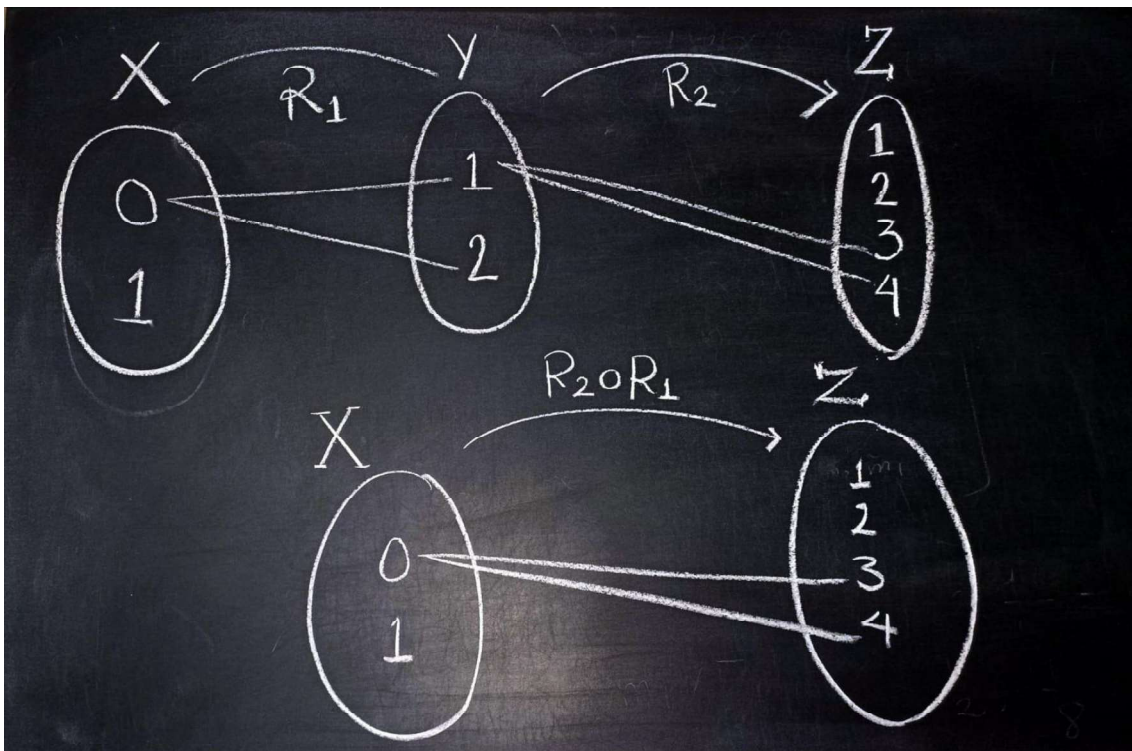 X R₁ Y R₂ Z
0
1
1
2
1
2
3
4
R₂∘R₁
X Z
0
1
1
2
3
4